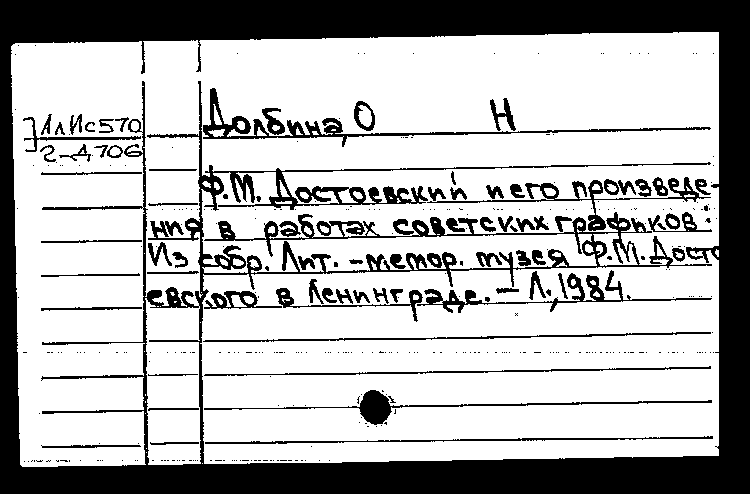 ЛлИс570
2-Д706
Долбина, О Н
Ф.М. Достоевский и его произведе-
ния в работах советских графиков:
Из собр. Лит.-мемор. музея Ф.М. Досто
евского в Ленинграде. - Л., 1984.